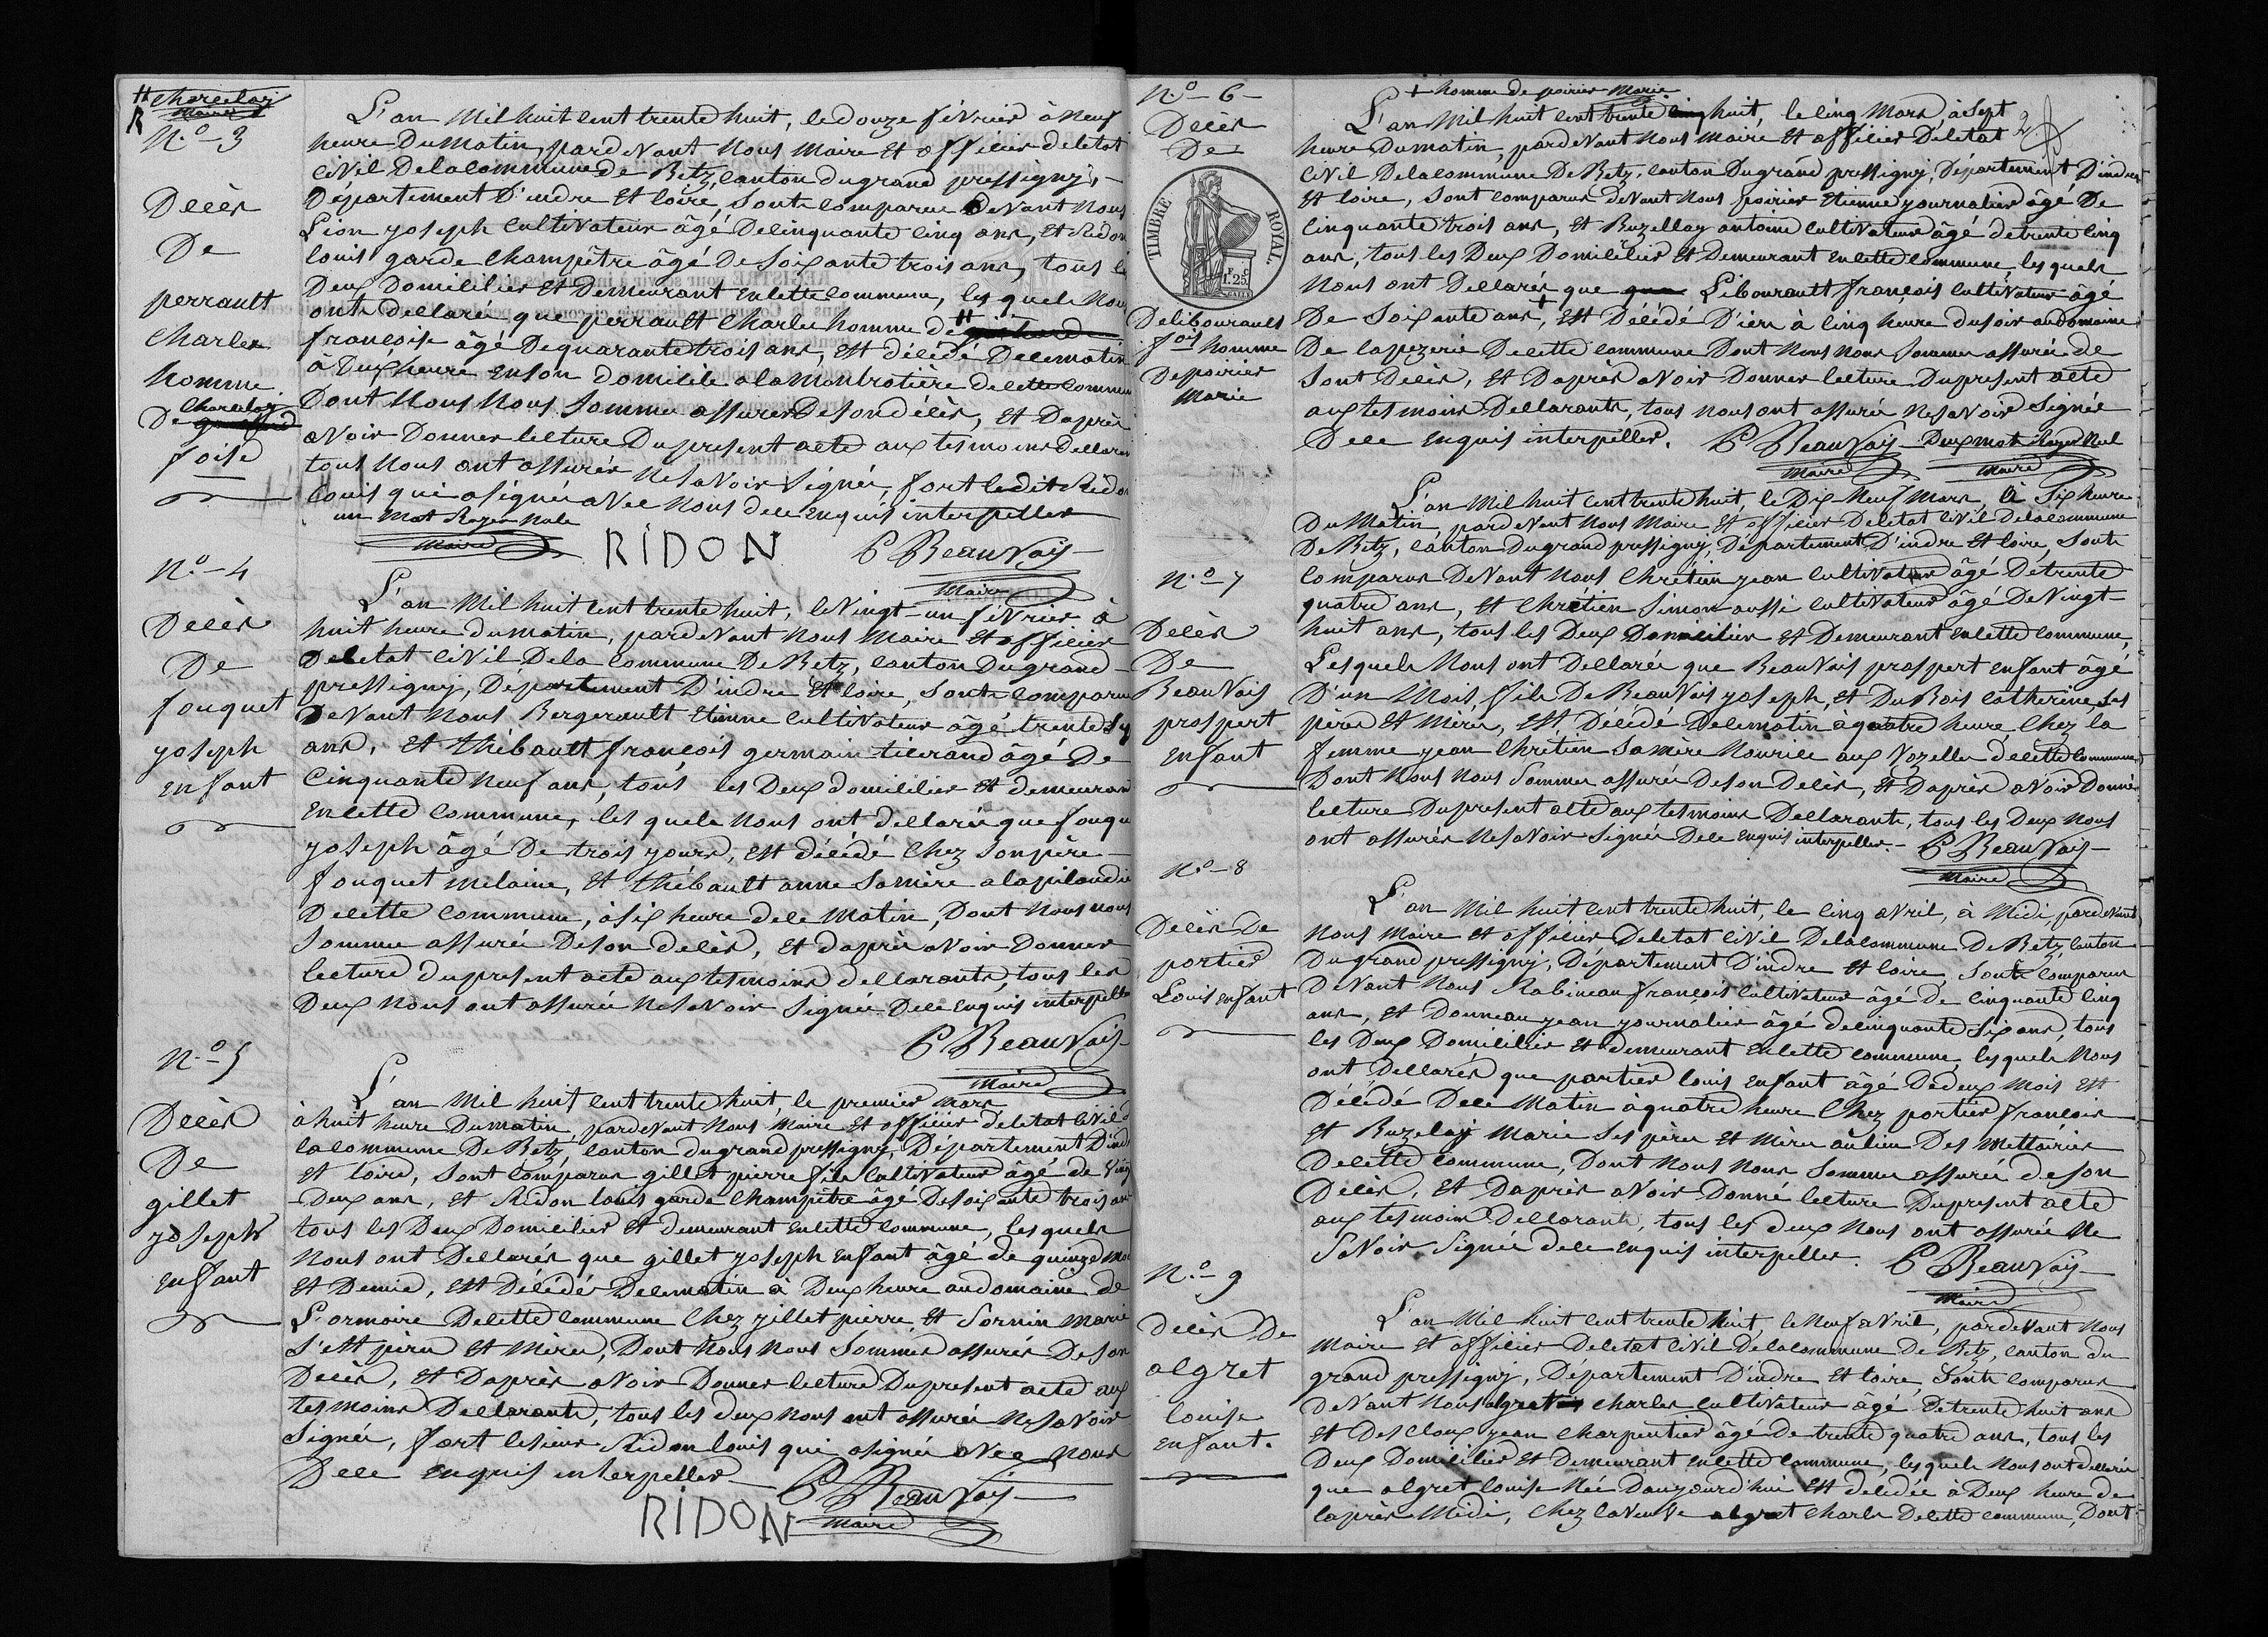 H Charcelay
Maire
R
N.o 3
Décès
De
perrault
Charles
homme
Charcelay
De
foise
L'an Mil huit cent trente huit, le douze février à Neuf
heure Du matin, pardevant Nous Maire Et officier deletat
Civil Delacommune de Betz, canton dugrand pressigny,
Département D'indre Et loire, sonte comparue Devant Nous
Lion yoseph Cultivateur âgé Decinquante cinq ans, Et Ridon
louis garde Champêtre âgé De Soixante trois ans, tous les
Deux Domicilier Et Demeurant Encette commune, les quels Nous
onte Dellaré que perrault Charles homme de H
françoise âgé Dequarante trois ans, Est décédé Decematin
à Deux heure Enson domicile alamontrotière decette commune
Dont Nous Nous Somme assurer Deson décès, Et Daprès
avoir Donner lecture Dupresent acte aux tesmoins Dellarant
tous Nous ont assurés Nesavoir Signée, fort ledit Ridon
louis qui asignée avec nous dece enquis interpeller
un Mot Rayer Nule
Maire
RIDON
P Beauvais
Maire
N.o 4
Décès
De
fouquet
yoseph
enfant
L'an Mil huit cent trente huit, levingt-un février à
huit heure dumatin, pardevant nous Maire Et officier
Deletat Civil Dela Commune De Betz, canton Dugrand
pressigny, Département D'indre Et loire, sonte comparue
Devant Nous Bergerault Etienne Cultivateur âgé trente
ans, Et thibault françois germain ticerand âgé De
Cinquante Neuf ans, tous les Deux domicilier Et demeurant
Encette Commune, les quels Nous ont dellarée que fouquet
yoseph âgé De trois yours, Est décédé Chez Son père
fouquet melaine, Et thébault anne Samère
Decette Commune, à six heure dece Matin, Dont Nous Nous
Somme assurée Deson decès, Et daprès avoir Donner
lecture dupresent acte aux tesmoins dellarante, tous les
Deux Nous ont assurée Nesavoir Signée Dece Enquis interpeller
P Beauvais
Maire
N.o 5
Décès
De
gillet
yoseph
enfant
L'an Mil huit cent trente huit, le premier Mars
à huit heure Dumatin, pardevant Nous Maire Et officier deletat Civil de
lacommune De Betz, canton dugrand pressigny, Département D'indre
Et loire, Sont comparus gillet pierre fils Cultivateur âgé de Vingt
Deux ans, Et Ridon louis garde Champêtre âgé De Soixante trois ans
tous les Deux Domicilier Et demeurant Encette commune, les quels
Nous ont Dellarés que gillet yoseph Enfant âgé de quinze Mois
Et Demie, Est Décédé Decematin à Deux heure audomaine de
L'ormoire Decette Commune Chez gillet pierre, Et Sornin Marie
S'est père Et Mère, Dont Nous Nous Sommes assurés De Son
Décès, Et Daprès avoir Donner lecture Dupresent acte aux
tesmoins Dellarante, tous les deux nous ont assurée Nesavoir
Signée, fort lesieur Ridon louis qui asignée avec nous
Dece Enquis interpeller
P Beauvais
RIDON
Maire
N.o 6
Décès
De
TIMBRE ROYAL.
F. C.
1.25
Delibourault
fois homme
Depoirier
Marie
+ homme de poirier Marie
L'an Mil huit cent trente huit, le cinq Mars, à Sept
2
heure Dumatin, pardevant Nous Maire Et officier Deletat
Civil Delacommune De Betz, canton Dugrand pressigny, Département D'indre
Et loire, Sont comparus devant Nous poirier Etienne yournalier âgé De
Cinquante trois ans, Et Buzellay antoine Cultivateur âgé detrente cinq
ans, tous les Deux Domicilier Et Demeurant Encette commune, les quels
Nous ont Dellarés que Libourault françois Cultivateur âgé
De Soixante ans +, Est Décédé D'ier à Cinq heure dusoir audomaine
De lapezerie Decette commune Dont Nous Nous Somme assurée de
Sont Décès, Et Daprès avoir Donner lecture Dupresent acte
aux tesmoins Dellarante, tous nous ont assurée Nesavoir Signée
Dece Enquis interpeller. P Beauvais Deux mot Rayer Nul
Maire Maire
N.o 7
Décès
De
Beauvais
prospert
Enfant
L'an Mil huit cent trente huit, le Dix Neuf Mars, à Six heure
Du Matin, pardevant Nous Maire Et officier Deletat Civil Delacommune
De Betz, canton Dugrand pressigny, Département D'indre Et loire, Sonte
Comparus Devant Nous Chrétien yean Cultivateur âgé Detrente
quatre ans, Et Chrétien Simon aussi Cultivateur âgé De Vingt
huit ans, tous les Deux Domicilier Et Demeurant Encette Commune,
Lesquels Nous ont Dellarée que Beauvais prospert Enfant âgé
D'un Mois, fils De Beauvais yoseph, Et DuBois Catherine ses
père Et Mère, Est Décédé Decematin aquatre heure Chez la
femme yean Chrétien Samère Nourice aux Vozelles decette commune
Dont Nous Nous Somme assurée Deson Décès, Et Daprès avoir Donné
lecture Dupresent acte aux tesmoins Dellarante, tous les Deux Nous
ont assurés Nesavoir Signée Dece Enquis interpeller. P Beauvais
Maire
N.o 8
Décès De
portier
Louis enfant
L'an Mil huit cent trente huit, le cinq avril, à Midi, pardevant
Nous Maire Et officier Deletat Civil Delacommune De Betz, canton
Dugrand pressigny, Département D'indre Et loire, Sonte Comparus
Devant Nous Rabineau françois Cultivateur âgé de Cinquante cinq
ans, Et Donneau yean yournalier âgé decinquante Six ans, tous
les Deux Domicilier Et demeurant Encette commune, les quels Nous
ont Dellarés que portier louis Enfant âgé Dedeux Mois Est
Décédé Dece Matin àquatre heure Chez portier françois
Et Buzelay Marie Ses père Et Mère aulieu Des Mettairies
Decette commune, Dont Nous Nous Somme assurée deson
Décès, Et Daprès avoir Donné lecture Dupresent acte
aux tesmoins Dellarante, tous les deux Nous ont assurée Ne
Savoir Signée dece enquis interpeller. P Beauvais
Maire
N.o 9
Décès De
algret
louise
enfant.
L'an Mil huit cent trente huit, leNeuf avril, pardevant Nous
Maire Et officier Deletat Civil Delacommune De Betz, canton du
grand pressigny, Département D'indre Et loire, Sonte Comparus
Devant Nous algret Charles Cultivateur âgé Detrente huit ans
Et Descloux yean Charpentier âgé de trente quatre ans, tous les
Deux Domicilier Et Demeurant Encette commune, les quels Nous ont dellarée
que algret louise Née Dauyourd'hui Est décédée à Deux heure de
laprès Midi, Chez laveuve algret Charles Decette commune, Dont